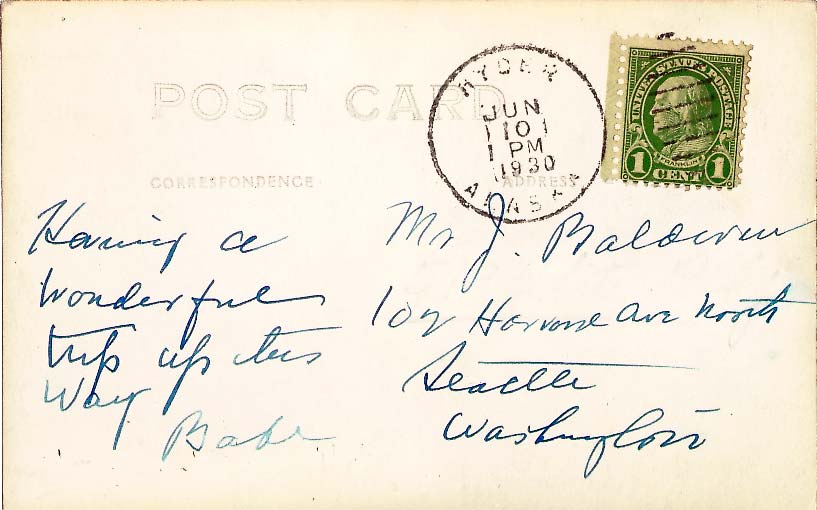 POST CARD
CORRESPONDENCE
ADDRESS
HYDER
JUN
10
1 PM
1930
ALASKA
UNITED STATES POSTAGE
FRANKLIN
1 CENT 1
Having a
wonderful
trip up this
way
Babe
Mr J. Baldwin
102 Harvard Ave North
Seattle
Washington